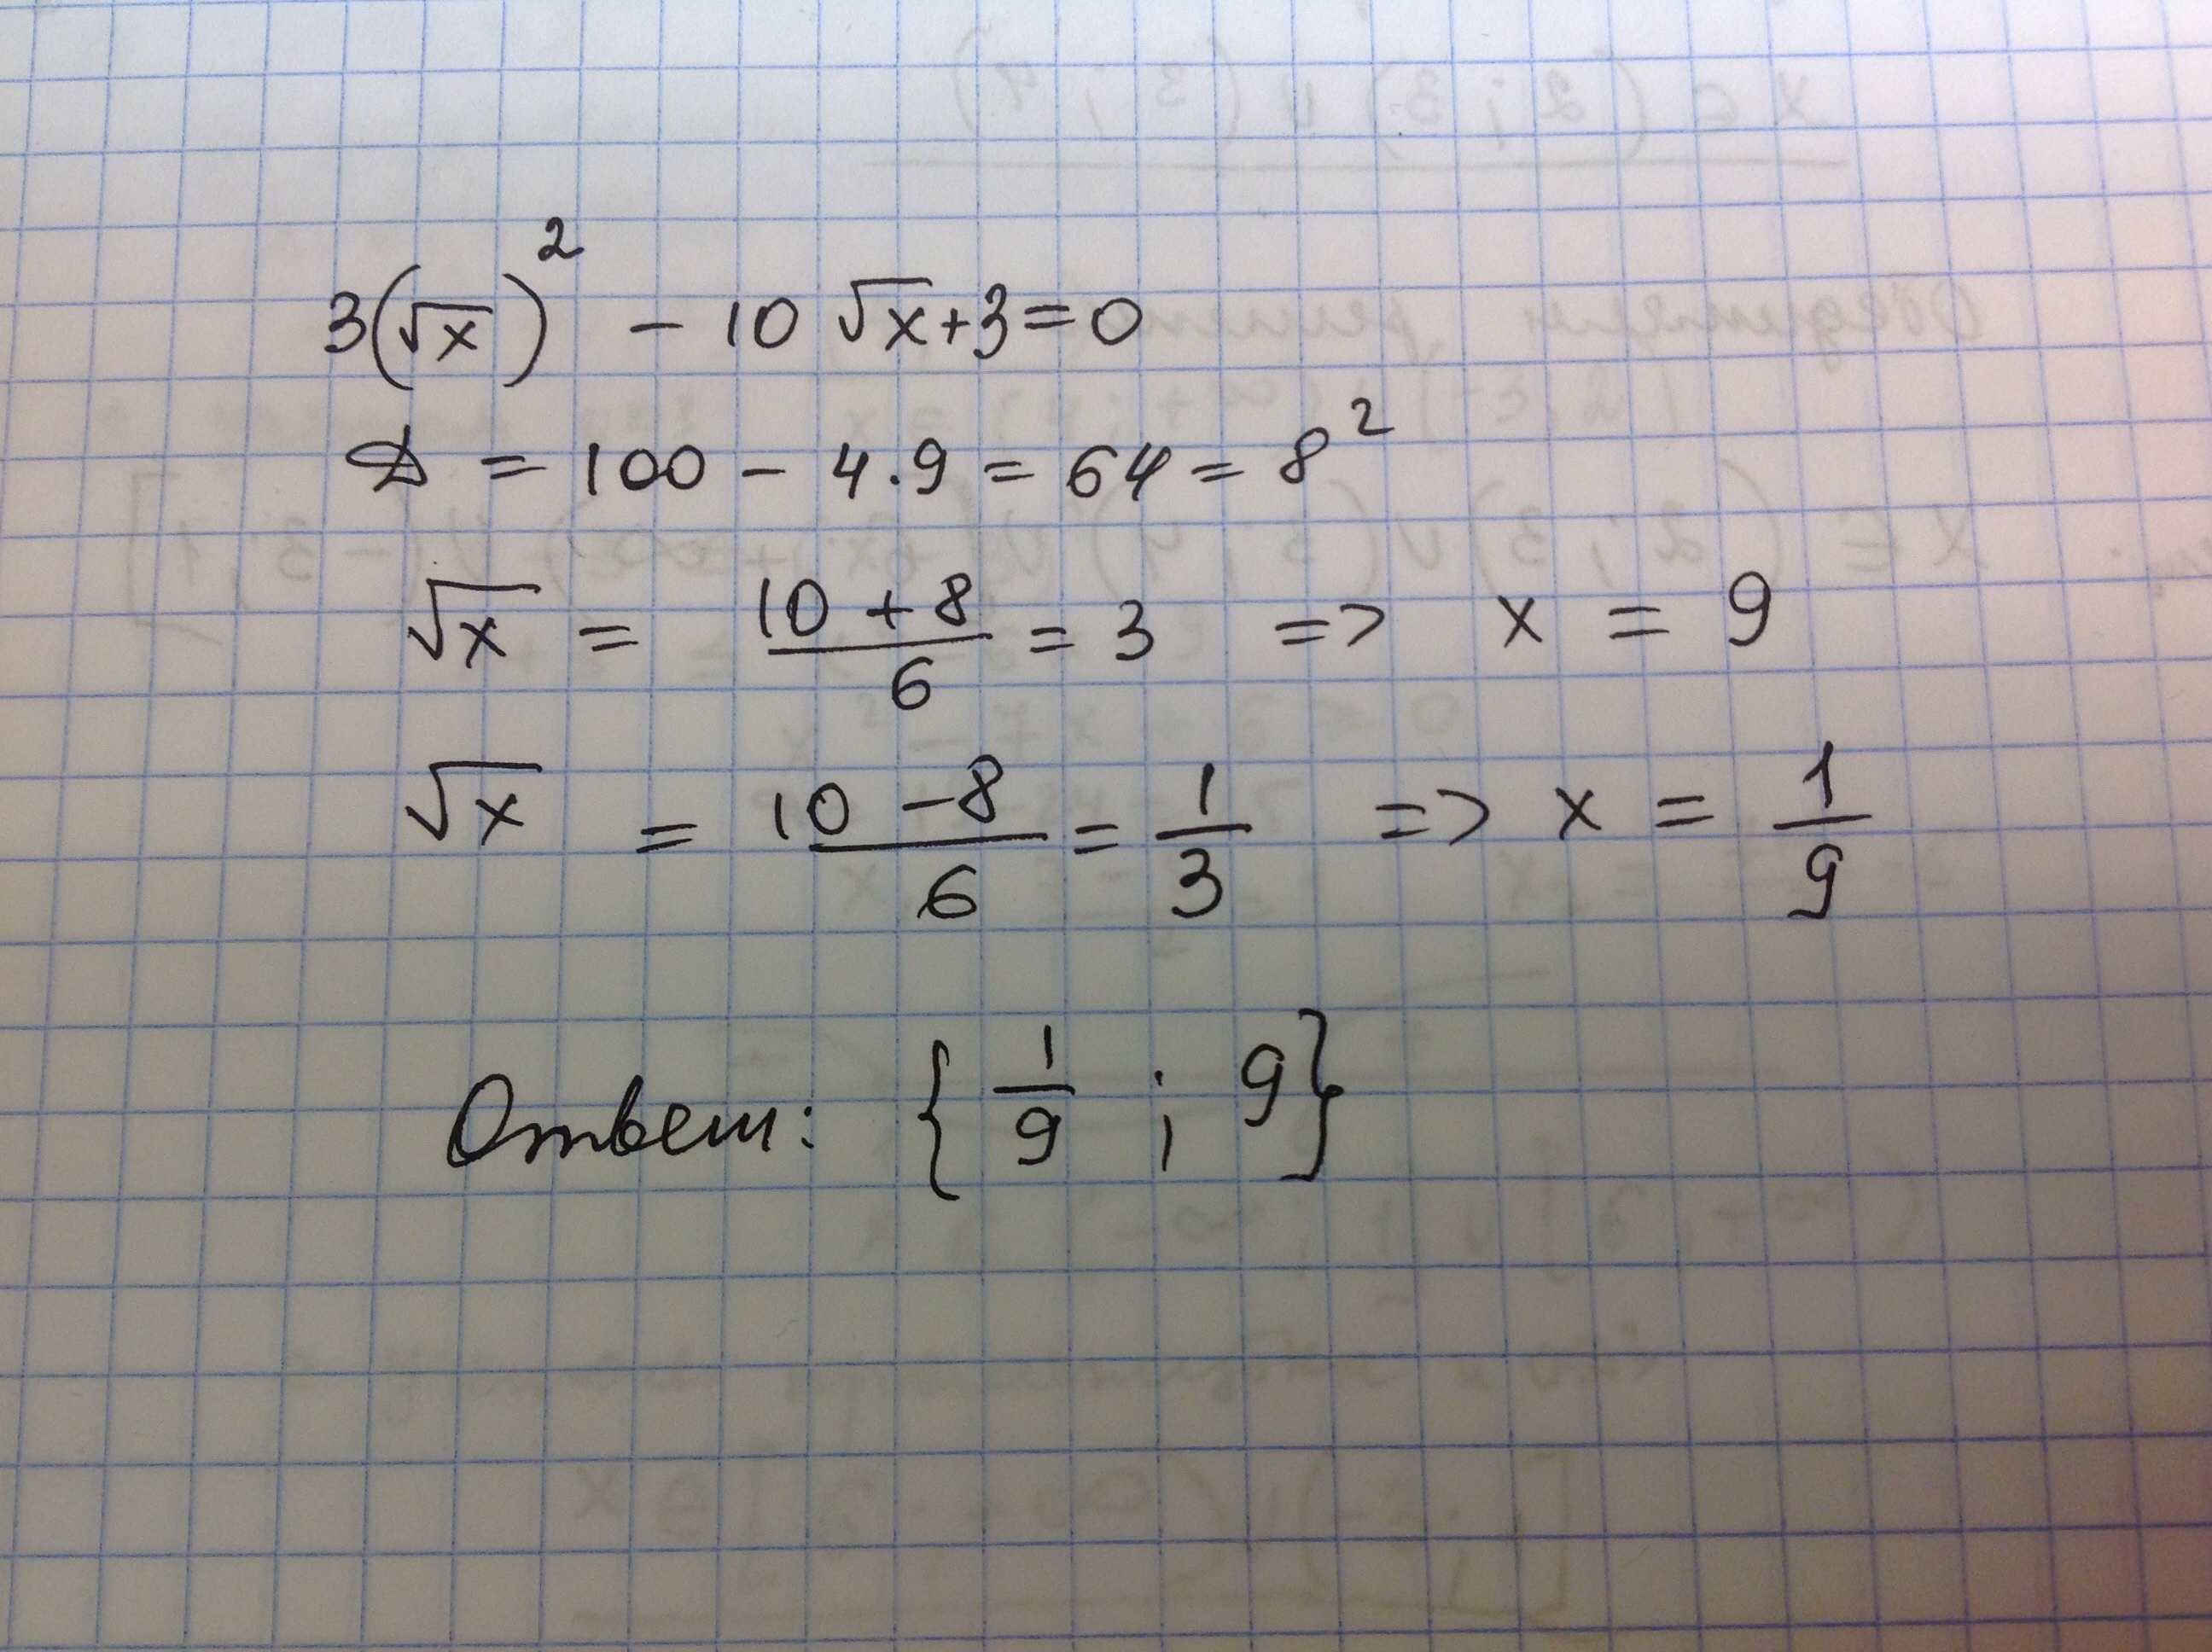 3(√x)² - 10√x + 3 = 0
D = 100 - 4·9 = 64 = 8²
√x = (10 + 8)/6 = 3 => x = 9
√x = (10 - 8)/6 = 1/3 => x = 1/9
Ответ: {1/9 ; 9}